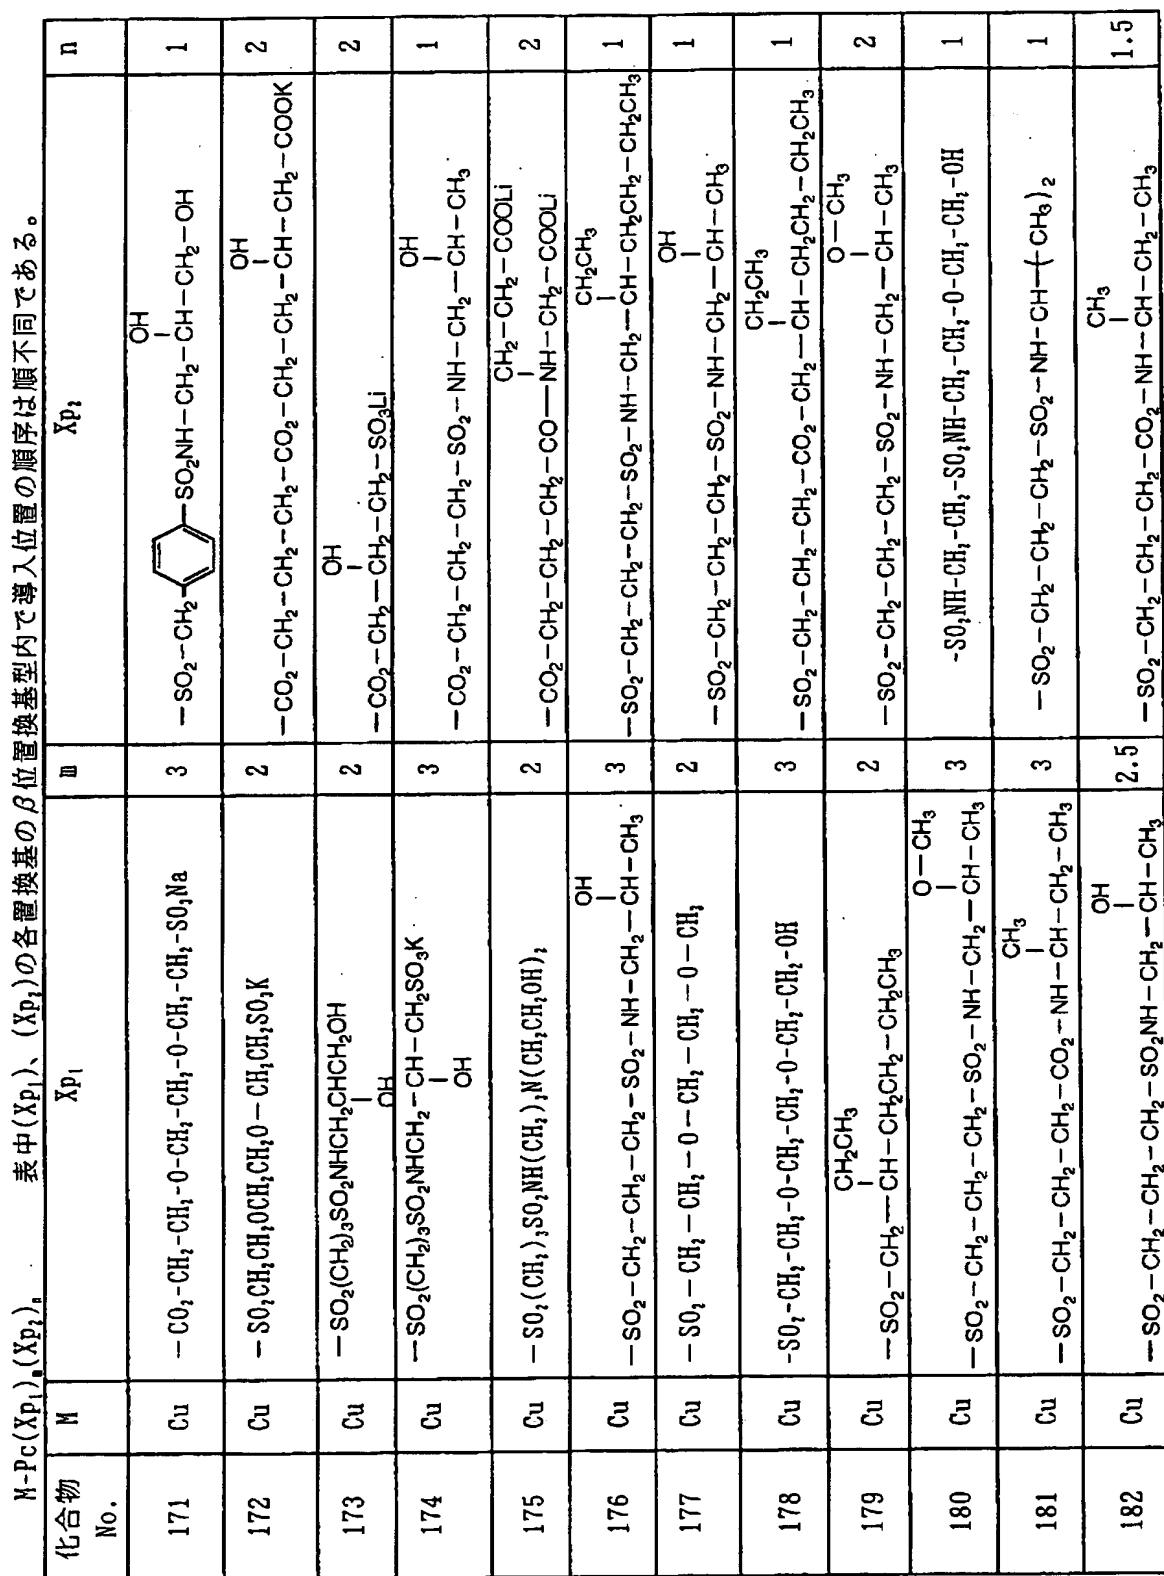 M-Pc(Xp₁)ₘ(Xp₂)ₙ 表中(Xp₁)、(Xp₂)の各置換基のβ位置換基型内で導入位置の順序は順不同である。
化合物 No. M Xp₁ m Xp₂ n
171 Cu －CO₂-CH₂-CH₂-O-CH₂-CH₂-O-CH₂-CH₂-SO₃Na 3 －SO₂－CH₂－ －SO₂NH－CH₂－CH(OH)－CH₂－OH 1
172 Cu －SO₂CH₂CH₂OCH₂CH₂O－CH₂CH₂SO₃K 2 －CO₂－CH₂－CH₂－CH₂－CO₂－CH₂－CH₂－CH(OH)－CH₂－COOK 2
173 Cu －SO₂(CH₂)₃SO₂NHCH₂CH(OH)CH₂OH 2 －CO₂－CH₂－CH(OH)－CH₂－SO₃Li 2
174 Cu －SO₂(CH₂)₃SO₂NHCH₂－CH(OH)－CH₂SO₃K 3 －CO₂－CH₂－CH₂－CH₂－SO₂－NH－CH₂－CH(OH)－CH₃ 1
175 Cu －SO₂(CH₂)₃SO₂NH(CH₂)₃N(CH₂CH₂OH)₂ 2 －CO₂－CH₂－CH₂－CH₂－CO－NH(CH₂－CH₂－COOLi)－CH₂－COOLi 2
176 Cu －SO₂－CH₂－CH₂－CH₂－SO₂－NH－CH₂－CH(OH)－CH₃ 3 －SO₂－CH₂－CH₂－CH₂－SO₂－NH－CH₂－CH(CH₂CH₃)－CH₂CH₂－CH₂CH₃ 1
177 Cu －SO₂－CH₂－CH₂－O－CH₂－CH₂－O－CH₃ 2 －SO₂－CH₂－CH₂－CH₂－SO₂－NH－CH₂－CH(OH)－CH₃ 1
178 Cu -SO₂-CH₂-CH₂-O-CH₂-CH₂-O-CH₂-CH₂-OH 3 －SO₂－CH₂－CH₂－CH₂－CO₂－CH₂－CH(CH₂CH₃)－CH₂CH₂－CH₂CH₃ 1
179 Cu －SO₂－CH₂－CH(CH₂CH₃)－CH₂CH₂－CH₂CH₃ 2 －SO₂－CH₂－CH₂－CH₂－SO₂－NH－CH₂－CH(O－CH₃)－CH₃ 2
180 Cu －SO₂－CH₂－CH₂－CH₂－SO₂－NH－CH₂－CH(O－CH₃)－CH₃ 3 -SO₂NH-CH₂-CH₂-SO₂NH-CH₂-CH₂-O-CH₂-CH₂-OH 1
181 Cu －SO₂－CH₂－CH₂－CH₂－CO₂－NH－CH(CH₃)－CH₂－CH₃ 3 －SO₂－CH₂－CH₂－CH₂－SO₂－NH－CH－(CH₃)₂ 1
182 Cu －SO₂－CH₂－CH₂－CH₂－SO₂NH－CH₂－CH(OH)－CH₃ 2.5 －SO₂－CH₂－CH₂－CH₂－CO₂－NH－CH(CH₃)－CH₂－CH₃ 1.5